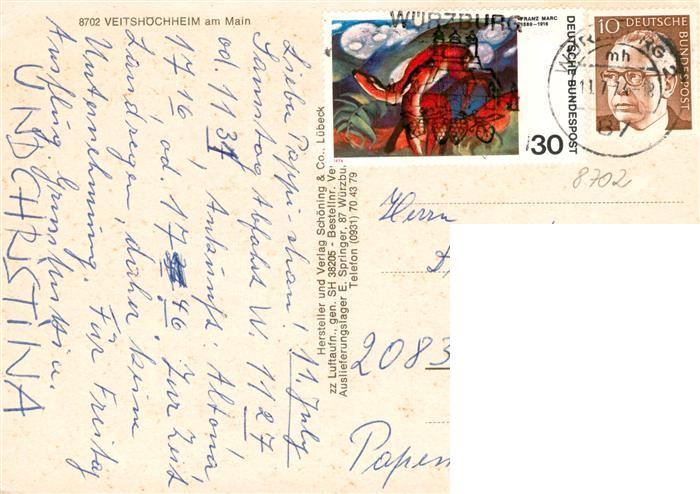 8702 VEITSHÖCHHEIM am Main
Lieber Pappi-chan! 11. July
Samstag Abfahrt W. 11 27
od. 11 37, Ankunft: Altona,
17 16, od. 17 46. Zur Zeit
Landregen, daher keine
Unternehmung. Für Freitag
Ausflug.
UND CHRISTINA
Hersteller und Verlag Schöning & Co., Lübeck
zz Luftaufn., gen. SH 38205 - Bestellnr. Ve
Auslieferungslager E. Springer, 87 Würzbu
Telefon (0931) 70 43 79
WÜRZBURG
FRANZ MARC
1880-1916
DEUTSCHE BUNDESPOST
30
1974
10 DEUTSCHE
BUNDESPOST
mh
11.7.74
87
8702
Herrn
2083
Papen